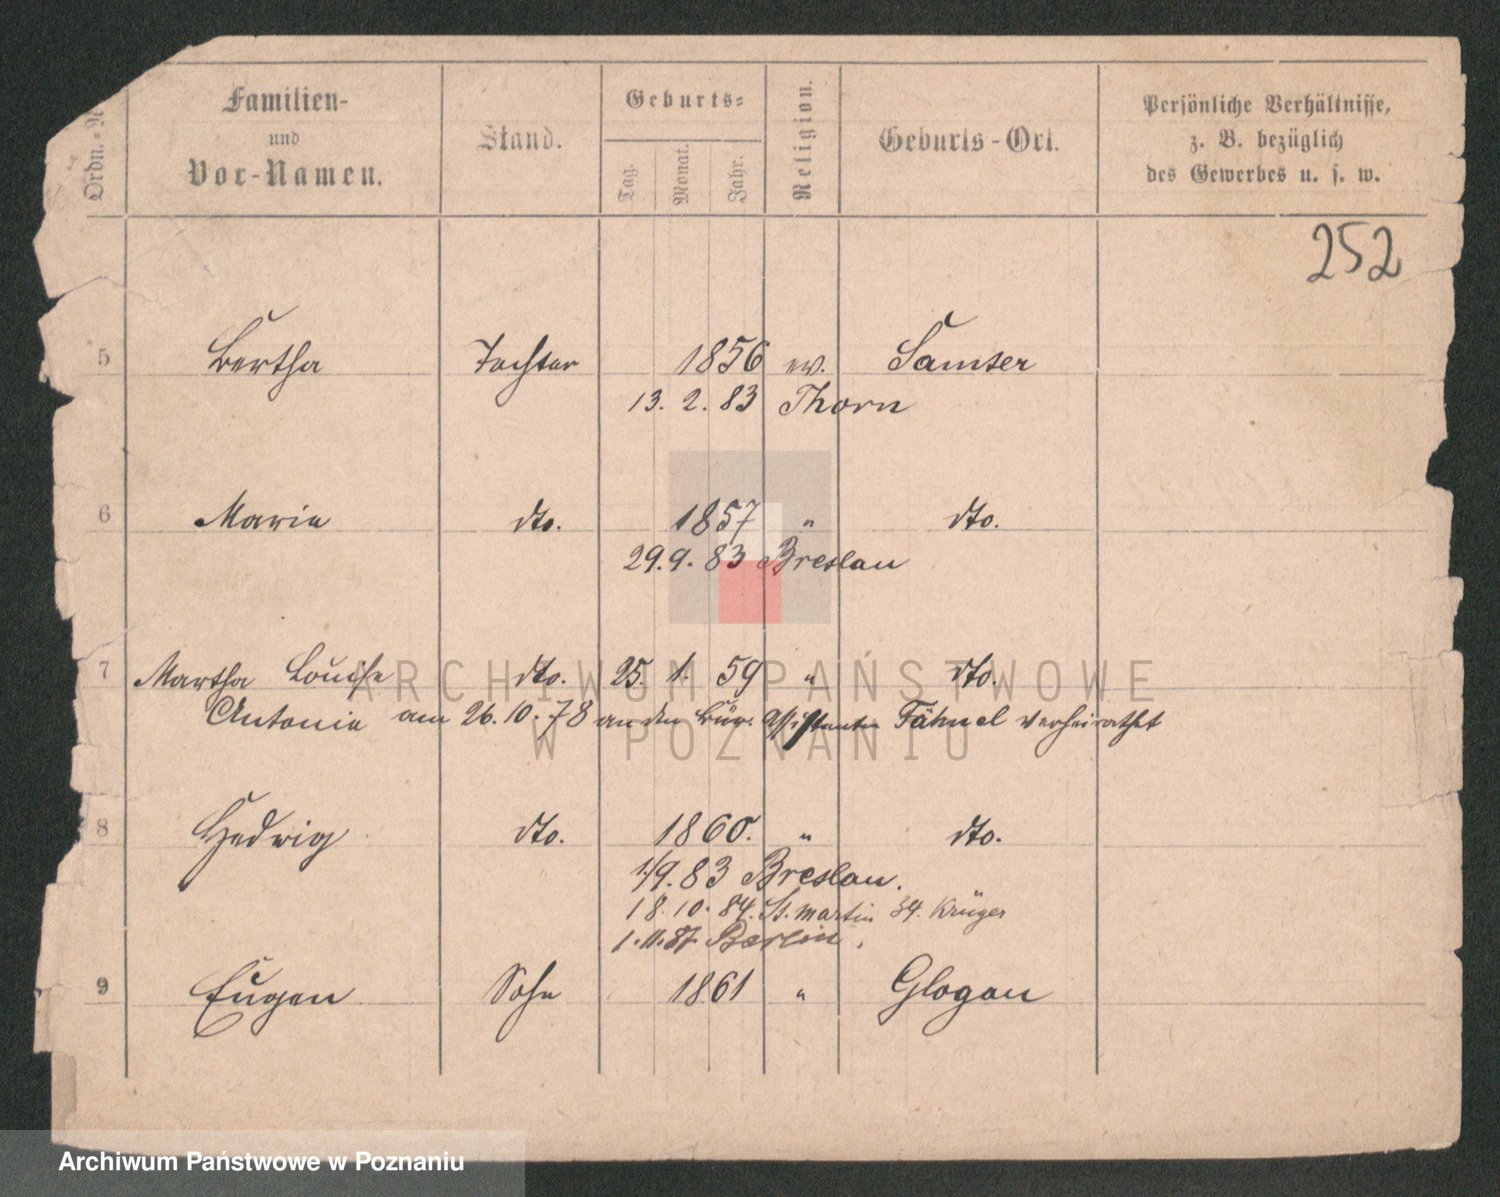 Ordn.=N
Familien-
und
Vor-Namen.
Stand.
Geburts=
Tag.
Monat.
Jahr.
Religion.
Geburts-Ort.
Persönliche Verhältnisse,
z. B. bezüglich
des Gewerbes u. s. w.
252
5 Bertha Tochter 1856 ev. Samter
13. 2. 83 Thorn
6 Marie dto. 1857 " dto.
29. 9. 83 Breslau
7 Martha Louise dto. 25. 1. 59 " dto.
Antonie am 26. 10. 78 an den Bür. Assistenten Fähnel verheirathet
8 Hedwig dto. 1860. " dto.
1/9. 83 Breslau.
18. 10. 84. St. Martin 34. Krüger
1. 11. 87. Berlin.
9 Eugen Sohn 1861 " Glogau
ARCHIWUM PAŃSTWOWE
W POZNANIU
Archiwum Państwowe w Poznaniu